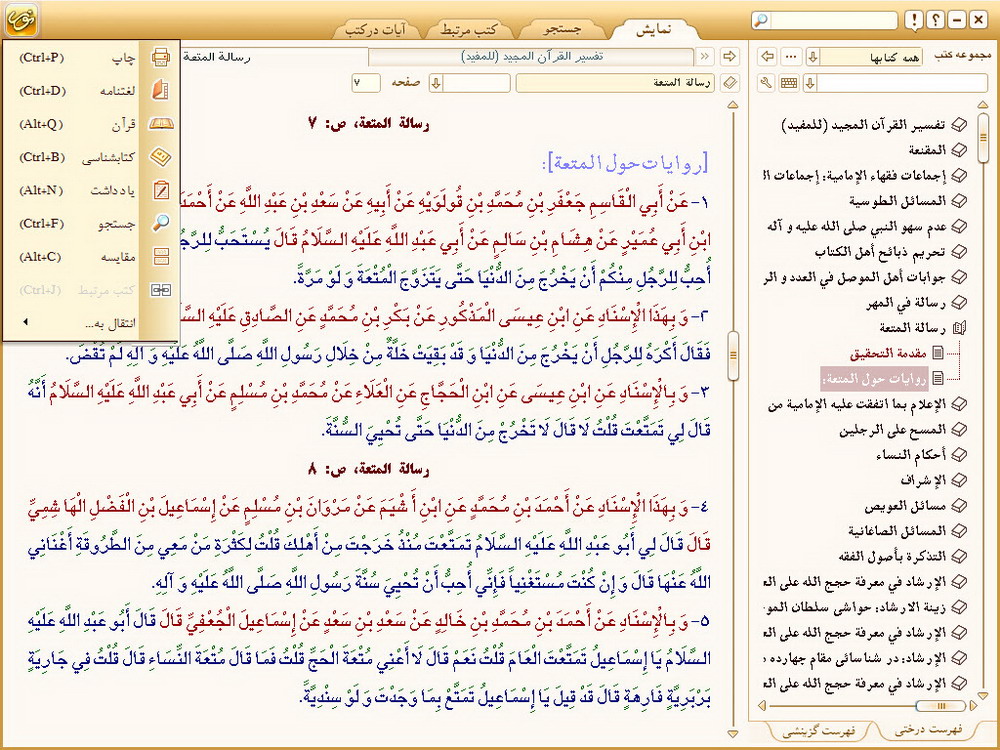 نمایش
جستجو
کتب مرتبط
آیات در کتب
مجموعه کتب
همه کتابها
تفسیر القرآن المجید (للمفید)
رسالة المتعة
رسالة المتعة
صفحه
٧
چاپ (Ctrl+P)
لغتنامه (Ctrl+D)
قرآن (Alt+Q)
کتابشناسی (Ctrl+B)
یادداشت (Alt+N)
جستجو (Ctrl+F)
مقایسه (Alt+C)
کتب مرتبط (Ctrl+J)
انتقال به...
تفسیر القرآن المجید (للمفید)
المقنعة
إجماعات فقهاء الإمامیة: إجماعات
المسائل الطوسیة
عدم سهو النبی صلی الله علیه و آله
تحریم ذبائح أهل الکتاب
جوابات أهل الموصل فی العدد و
رسالة فی المهر
رسالة المتعة
مقدمة التحقیق
روایات حول المتعة:
الإعلام بما اتفقت علیه الإمامیة من
المسح علی الرجلین
أحکام النساء
الإشراف
مسائل العویص
المسائل الصاغانیة
التذکرة بأصول الفقه
الإرشاد فی معرفة حجج الله علی
زینة الارشاد: حواشی سلطان
الإرشاد فی معرفة حجج الله علی
الإرشاد: در شناسائی مقام چهارده
الإرشاد فی معرفة حجج الله علی
فهرست درختی
فهرست گزینشی
رسالة المتعة، ص: ٧
[روایات حول المتعة]:
١- عَنْ أَبِي الْقَاسِمِ جَعْفَرِ بْنِ مُحَمَّدِ بْنِ قُولَوَيْهِ عَنْ أَبِيهِ عَنْ سَعْدِ بْنِ عَبْدِ اللَّهِ عَنْ أَحْمَدَ
ابْنِ أَبِي عُمَيْرٍ عَنْ هِشَامِ بْنِ سَالِمٍ عَنْ أَبِي عَبْدِ اللَّهِ عَلَيْهِ السَّلَامُ قَالَ يُسْتَحَبُّ لِلرَّجُلِ
أُحِبُّ لِلرَّجُلِ مِنْكُمْ أَنْ يَخْرُجَ مِنَ الدُّنْيَا حَتَّى يَتَزَوَّجَ الْمُتْعَةَ وَ لَوْ مَرَّةً.
٢- وَ بِهَذَا الْإِسْنَادِ عَنِ ابْنِ عِيسَى الْمَذْكُورِ عَنْ بَكْرِ بْنِ مُحَمَّدٍ عَنِ الصَّادِقِ عَلَيْهِ
فَقَالَ أَكْرَهُ لِلرَّجُلِ أَنْ يَخْرُجَ مِنَ الدُّنْيَا وَ قَدْ بَقِيَتْ خَلَّةٌ مِنْ خِلَالِ رَسُولِ اللَّهِ صَلَّى اللَّهُ عَلَيْهِ وَ آلِهِ لَمْ تُقْضَ.
٣- وَ بِالْإِسْنَادِ عَنِ ابْنِ عِيسَى عَنِ ابْنِ الْحَجَّاجِ عَنِ الْعَلَاءِ عَنْ مُحَمَّدِ بْنِ مُسْلِمٍ عَنْ أَبِي عَبْدِ اللَّهِ عَلَيْهِ السَّلَامُ أَنَّهُ
قَالَ لِي تَمَتَّعْتَ قُلْتُ لَا قَالَ لَا تَخْرُجْ مِنَ الدُّنْيَا حَتَّى تُحْيِيَ السُّنَّةَ.
رسالة المتعة، ص: ٨
٤- وَ بِهَذَا الْإِسْنَادِ عَنْ أَحْمَدَ بْنِ مُحَمَّدٍ عَنِ ابْنِ أَشْيَمَ عَنْ مَرْوَانَ بْنِ مُسْلِمٍ عَنْ إِسْمَاعِيلَ بْنِ الْفَضْلِ الْهَاشِمِيِّ
قَالَ قَالَ لِي أَبُو عَبْدِ اللَّهِ عَلَيْهِ السَّلَامُ تَمَتَّعْتَ مُنْذُ خَرَجْتَ مِنْ أَهْلِكَ قُلْتُ لِكَثْرَةِ مَنْ مَعِي مِنَ الطَّرُوقَةِ أَغْنَانِي
اللَّهُ عَنْهَا قَالَ وَ إِنْ كُنْتَ مُسْتَغْنِياً فَإِنِّي أُحِبُّ أَنْ تُحْيِيَ سُنَّةَ رَسُولِ اللَّهِ صَلَّى اللَّهُ عَلَيْهِ وَ آلِهِ.
٥- وَ بِالْإِسْنَادِ عَنْ أَحْمَدَ بْنِ مُحَمَّدِ بْنِ خَالِدٍ عَنْ سَعْدِ بْنِ سَعْدٍ عَنْ إِسْمَاعِيلَ الْجُعْفِيِّ قَالَ قَالَ أَبُو عَبْدِ اللَّهِ عَلَيْهِ
السَّلَامُ يَا إِسْمَاعِيلُ تَمَتَّعْتَ الْعَامَ قُلْتُ نَعَمْ قَالَ لَا أَعْنِي مُتْعَةَ الْحَجِّ قُلْتُ فَمَا قَالَ مُتْعَةَ النِّسَاءِ قَالَ قُلْتُ فِي جَارِيَةٍ
بَرْبَرِيَّةٍ فَارِهَةٍ قَالَ قَدْ قِيلَ يَا إِسْمَاعِيلُ تَمَتَّعْ بِمَا وَجَدْتَ وَ لَوْ سِنْدِيَّةً.